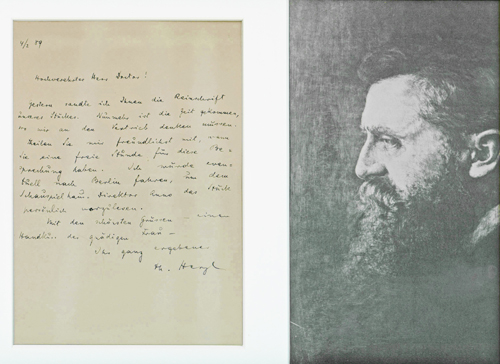 4/I 89
Hochverehrter Herr Doctor!
Gestern sandte ich Ihnen die Reinschrift
unseres Stückes. Nunmehr ist die Zeit gekommen,
wo wir an den Vertrieb denken müssen.
Theilen Sie mir freundlichst mit, wann
Sie eine freie Stunde für diese Be-
sprechung haben. Ich würde even-
tuell nach Berlin fahren, um dem
Schauspielhaus-Director Anno das Stück
persönlich vorzulesen.
Mit den schönsten Grüssen – eine
Handkuss der gnädigen Frau –
Ihr ganz ergebener
Th. Herzl